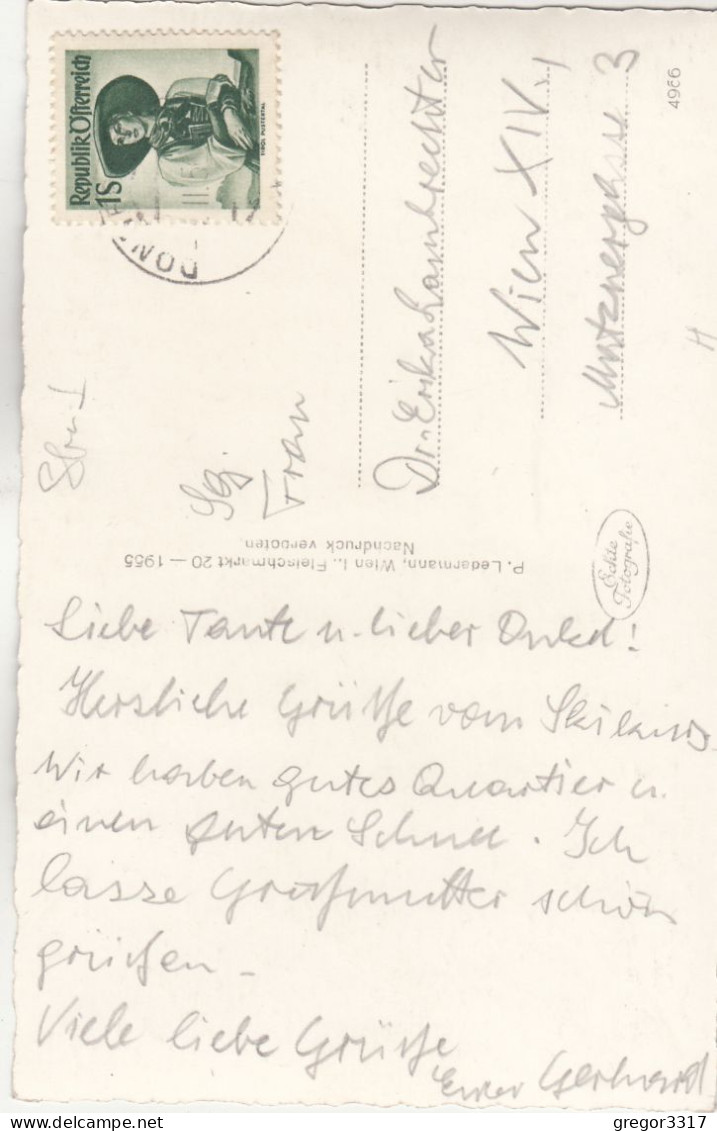 Republik Österreich
1S
TIROL PUSTERTAL
4966
Frau
Dr. Erika Lambrechter
Wien XIV,
Matznergasse 3
H
Echte
Fotografie
P. Ledermann, Wien I., Fleischmarkt 20 — 1955
Nachdruck verboten.
Liebe Tante u. lieber Onkel!
Herzliche Grüße vom Skikurs.
Wir haben gutes Quartier u.
einen guten Schnee. Ich
lasse Großmutter schön
grüßen –
Viele liebe Grüße
Euer Gerhard
gregor3317